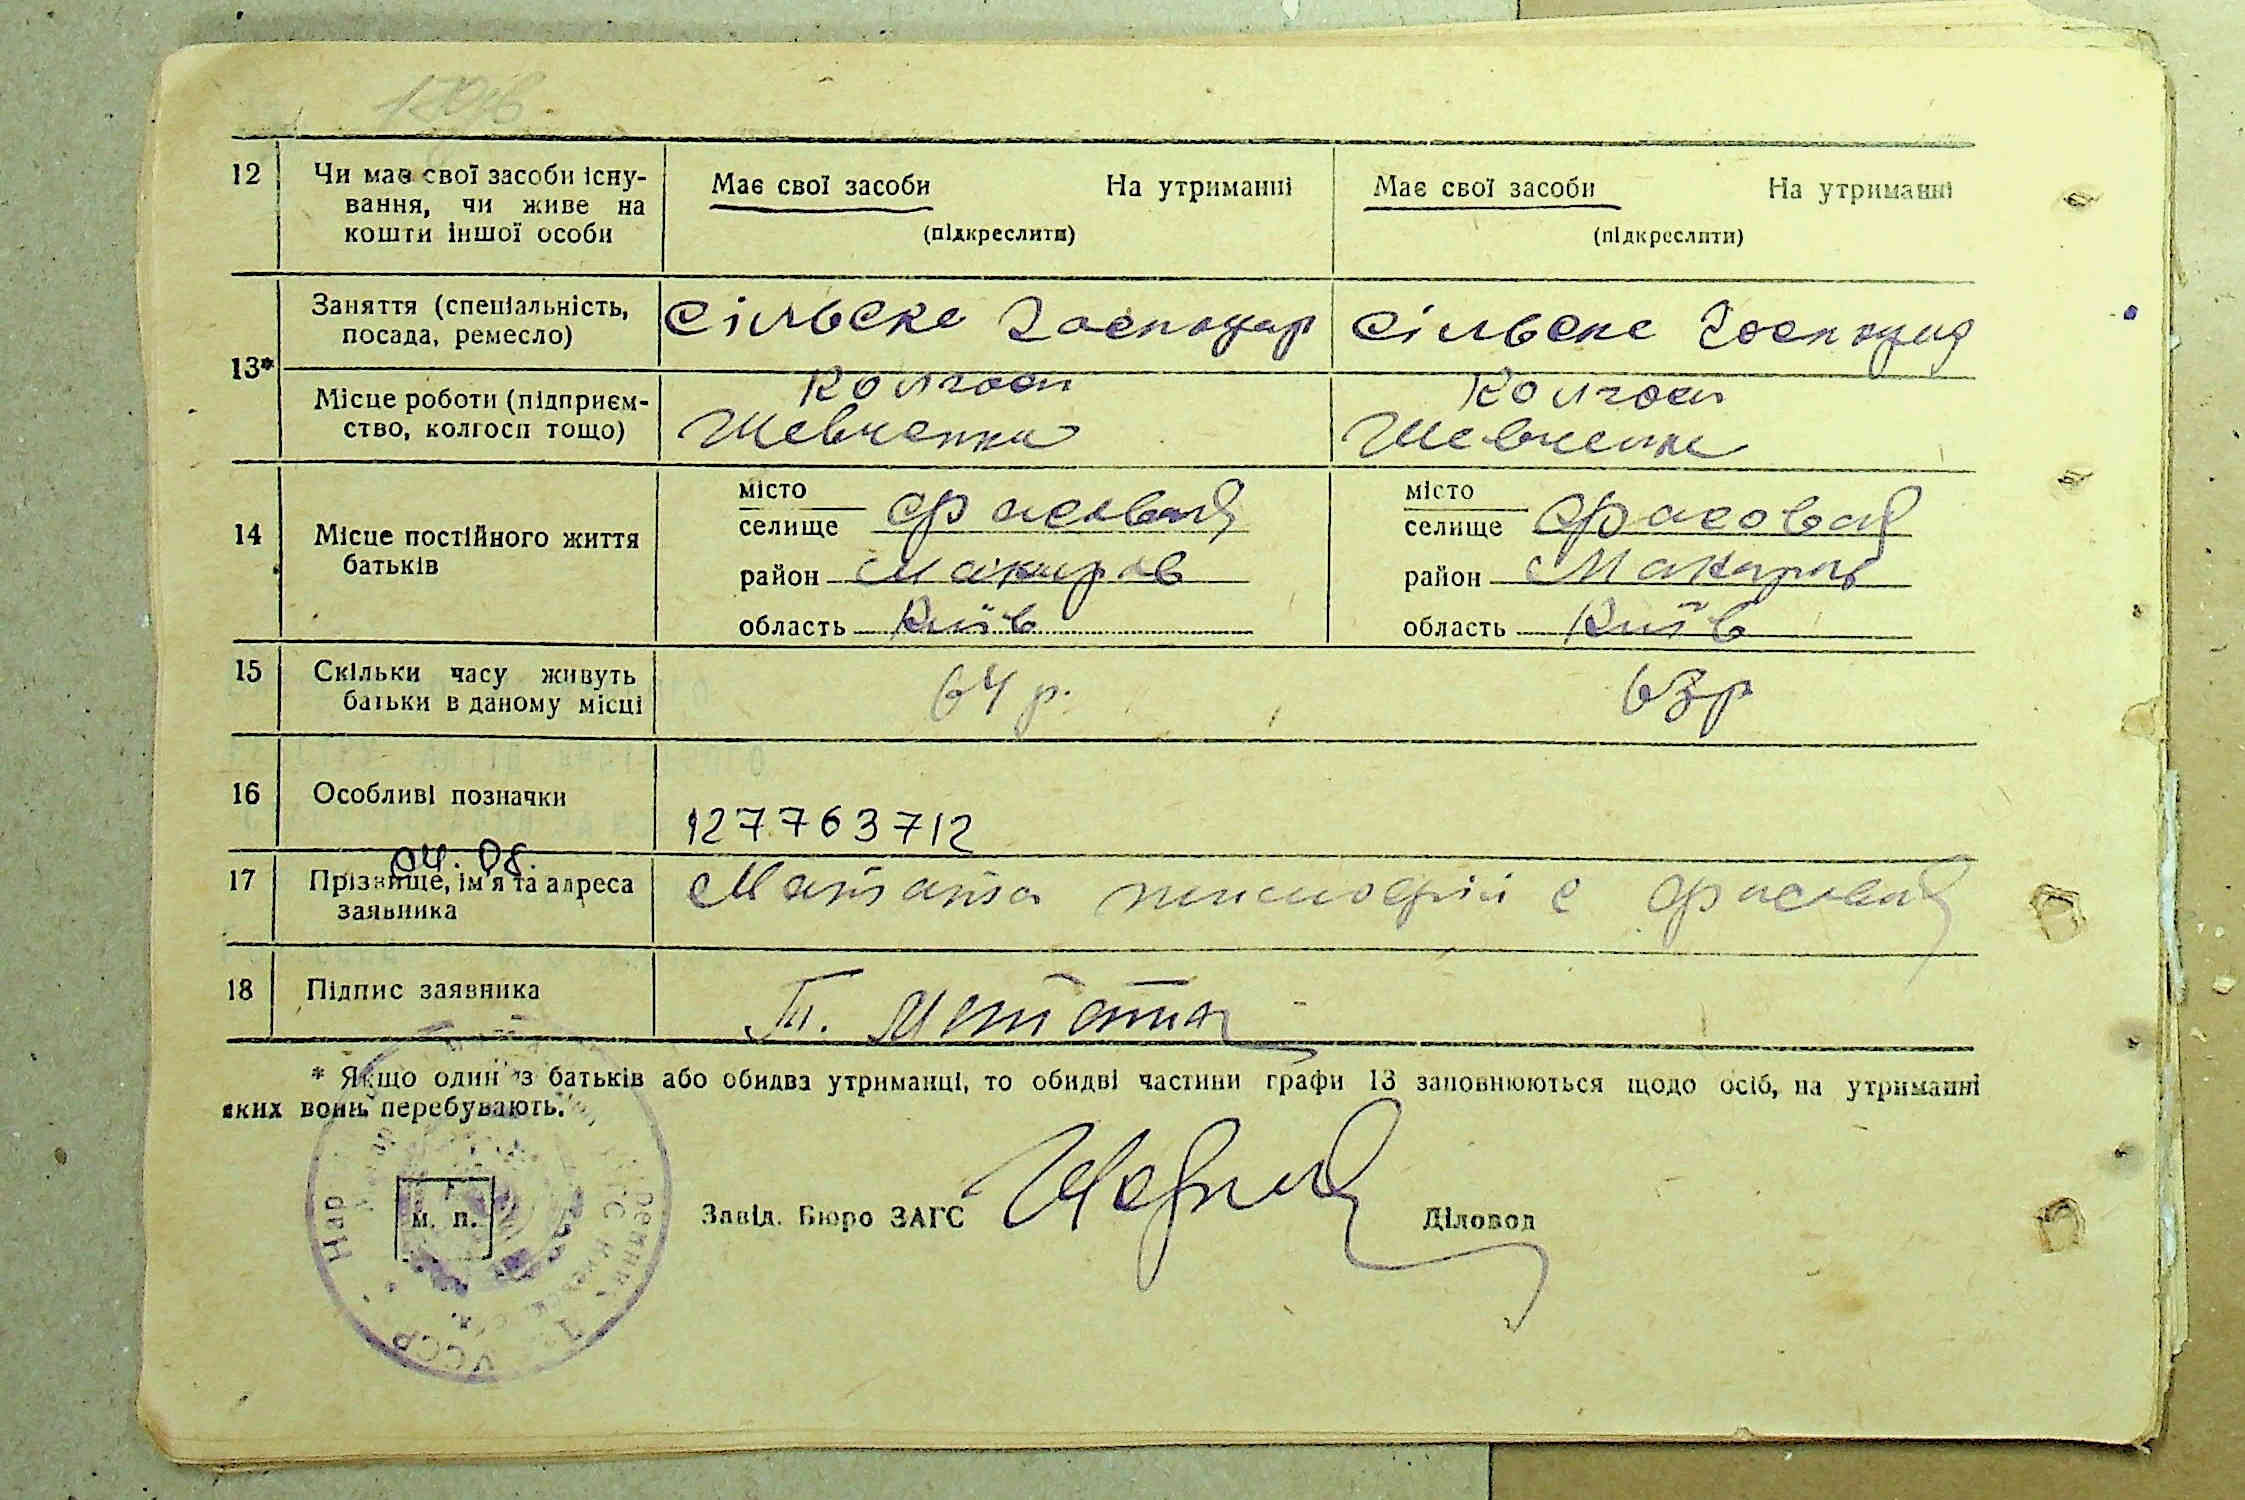 12 Чи має свої засоби існу-
вання, чи живе на
кошти іншої особи
Має свої засоби На утриманні
(підкреслити)
Має свої засоби На утриманні
(підкреслити)
13*
Заняття (спеціальність,
посада, ремесло)
Сільске Господар
Сільске
Місце роботи (підприєм-
ство, колгосп тощо)
Колгосп
Шевченка
Колгосп
Шевченка
14 Місце постійного життя
батьків
місто
селище
район Макаров
область Київ
місто
селище
район Макаров
область Київ
15 Скільки часу живуть
батьки в даному місці
64 р.
63р
16 Особливі позначки
127763712
04. 08.
17 Прізвище, ім'я та адреса
заявника
18 Підпис заявника
* Якщо один із батьків або обидва утриманці, то обидві частини графи 13 заповнюються щодо осіб, на утриманні
яких вони перебувають.
м. п.
Завід. Бюро ЗАГС
Діловод
УССР